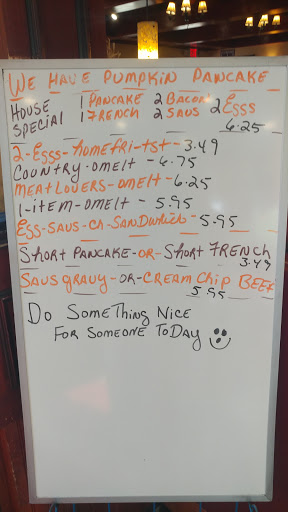 WE HAVE PUMPKIN PANCAKE
HOUSE 1 PANCAKE 2 BACON 2 EGGS
SPECIAL 1 FRENCH 2 SAUS
6.25
2-EGGS-HOMEFRI-TST-3.49
COUNTRY-OMELT-6.75
MEATLOVERS-OMELT-6.25
1-ITEM-OMELT-5.95
EGG-SAUS-CH-SANDWICH-5.95
SHORT PANCAKE-OR-SHORT FRENCH
3.49
SAUSGRAVY-OR-CREAM CHIP BEEF
5.95
DO SOMETHING NICE
FOR SOMEONE TODAY